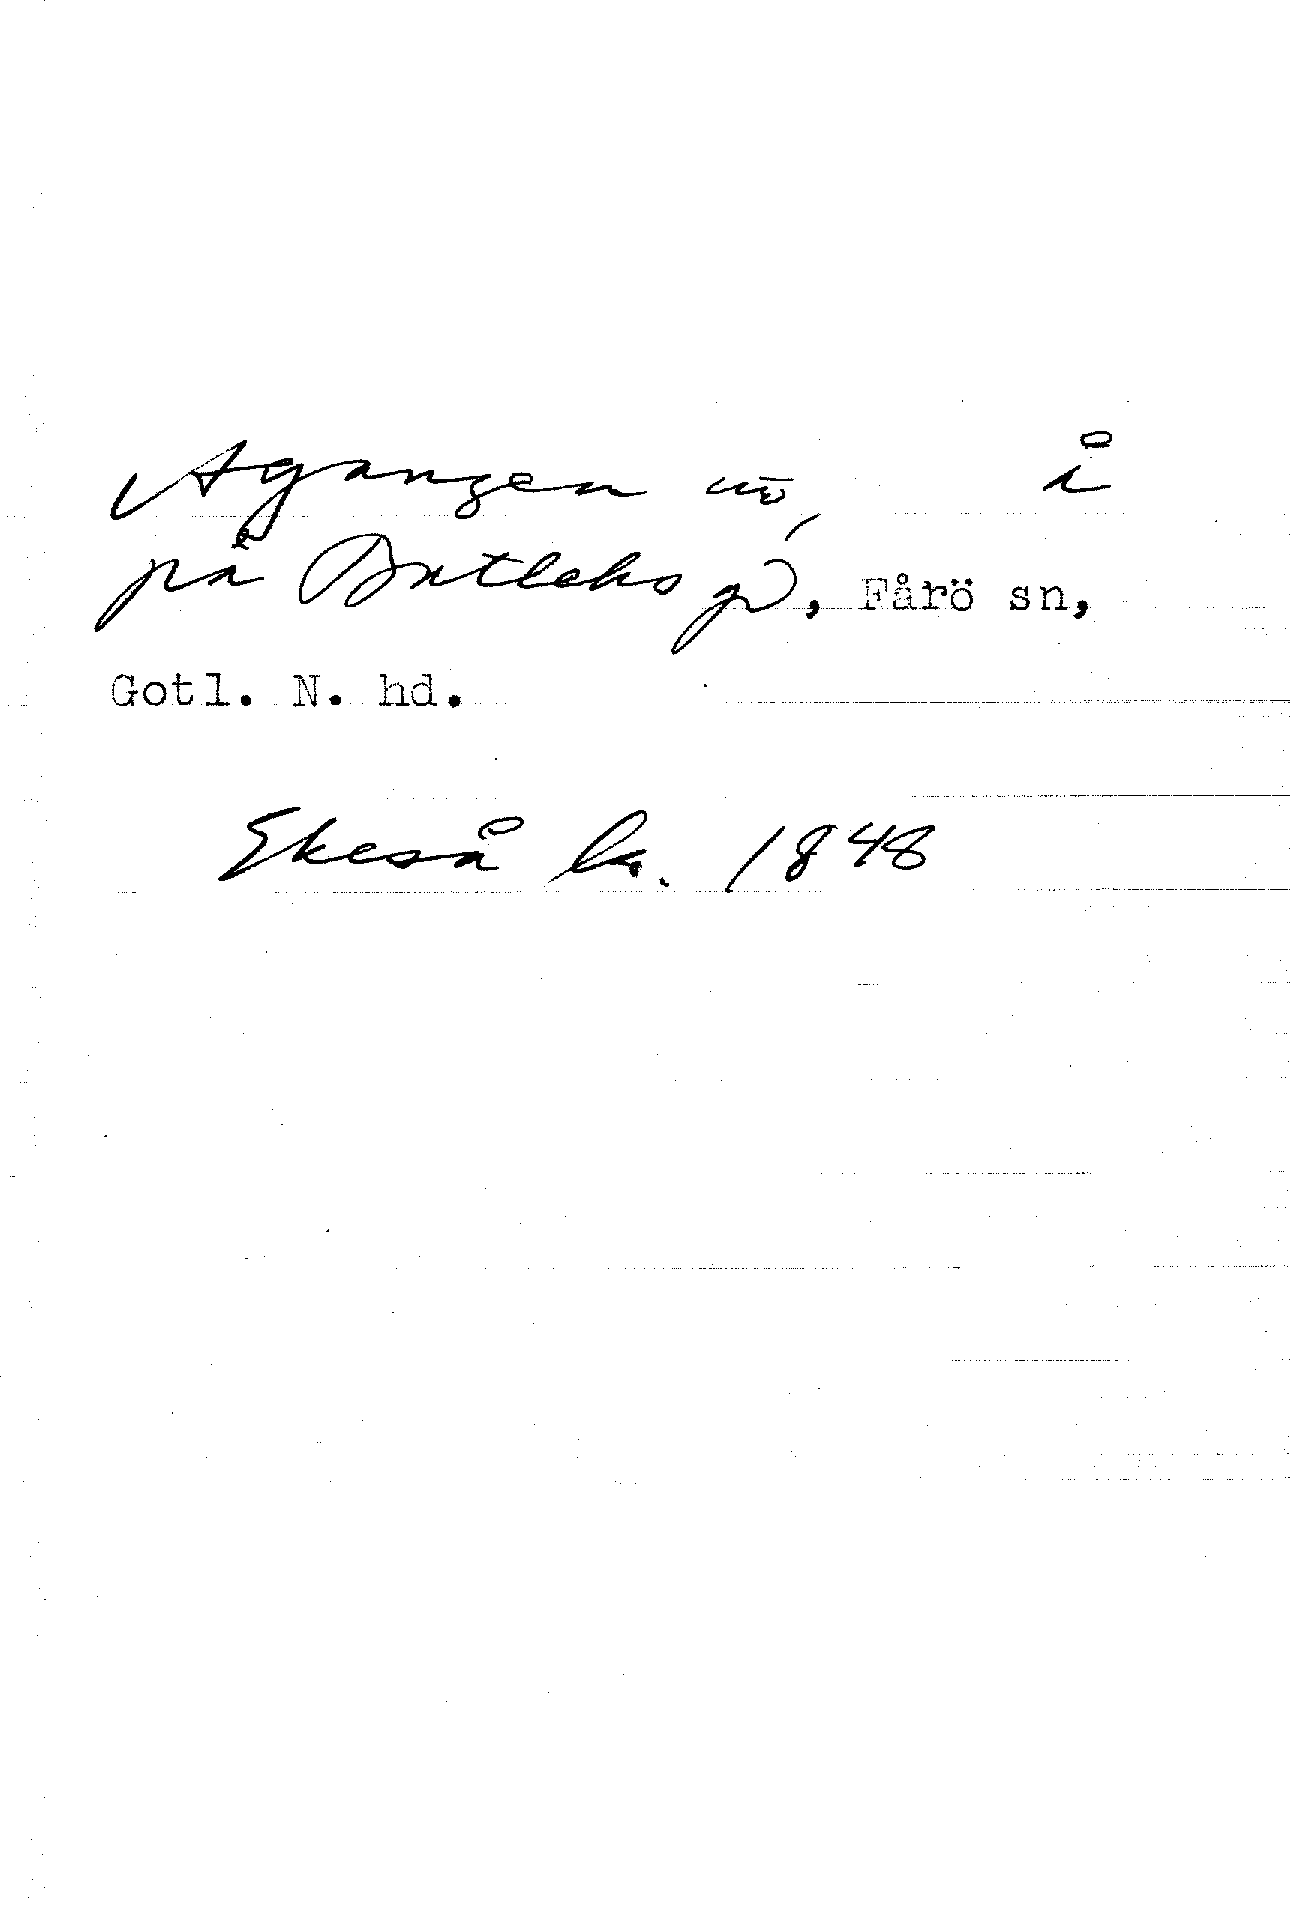 Agangen å
på Butleks g), Fårö sn,
Gotl. N. hd.
Ekeså la. 1848